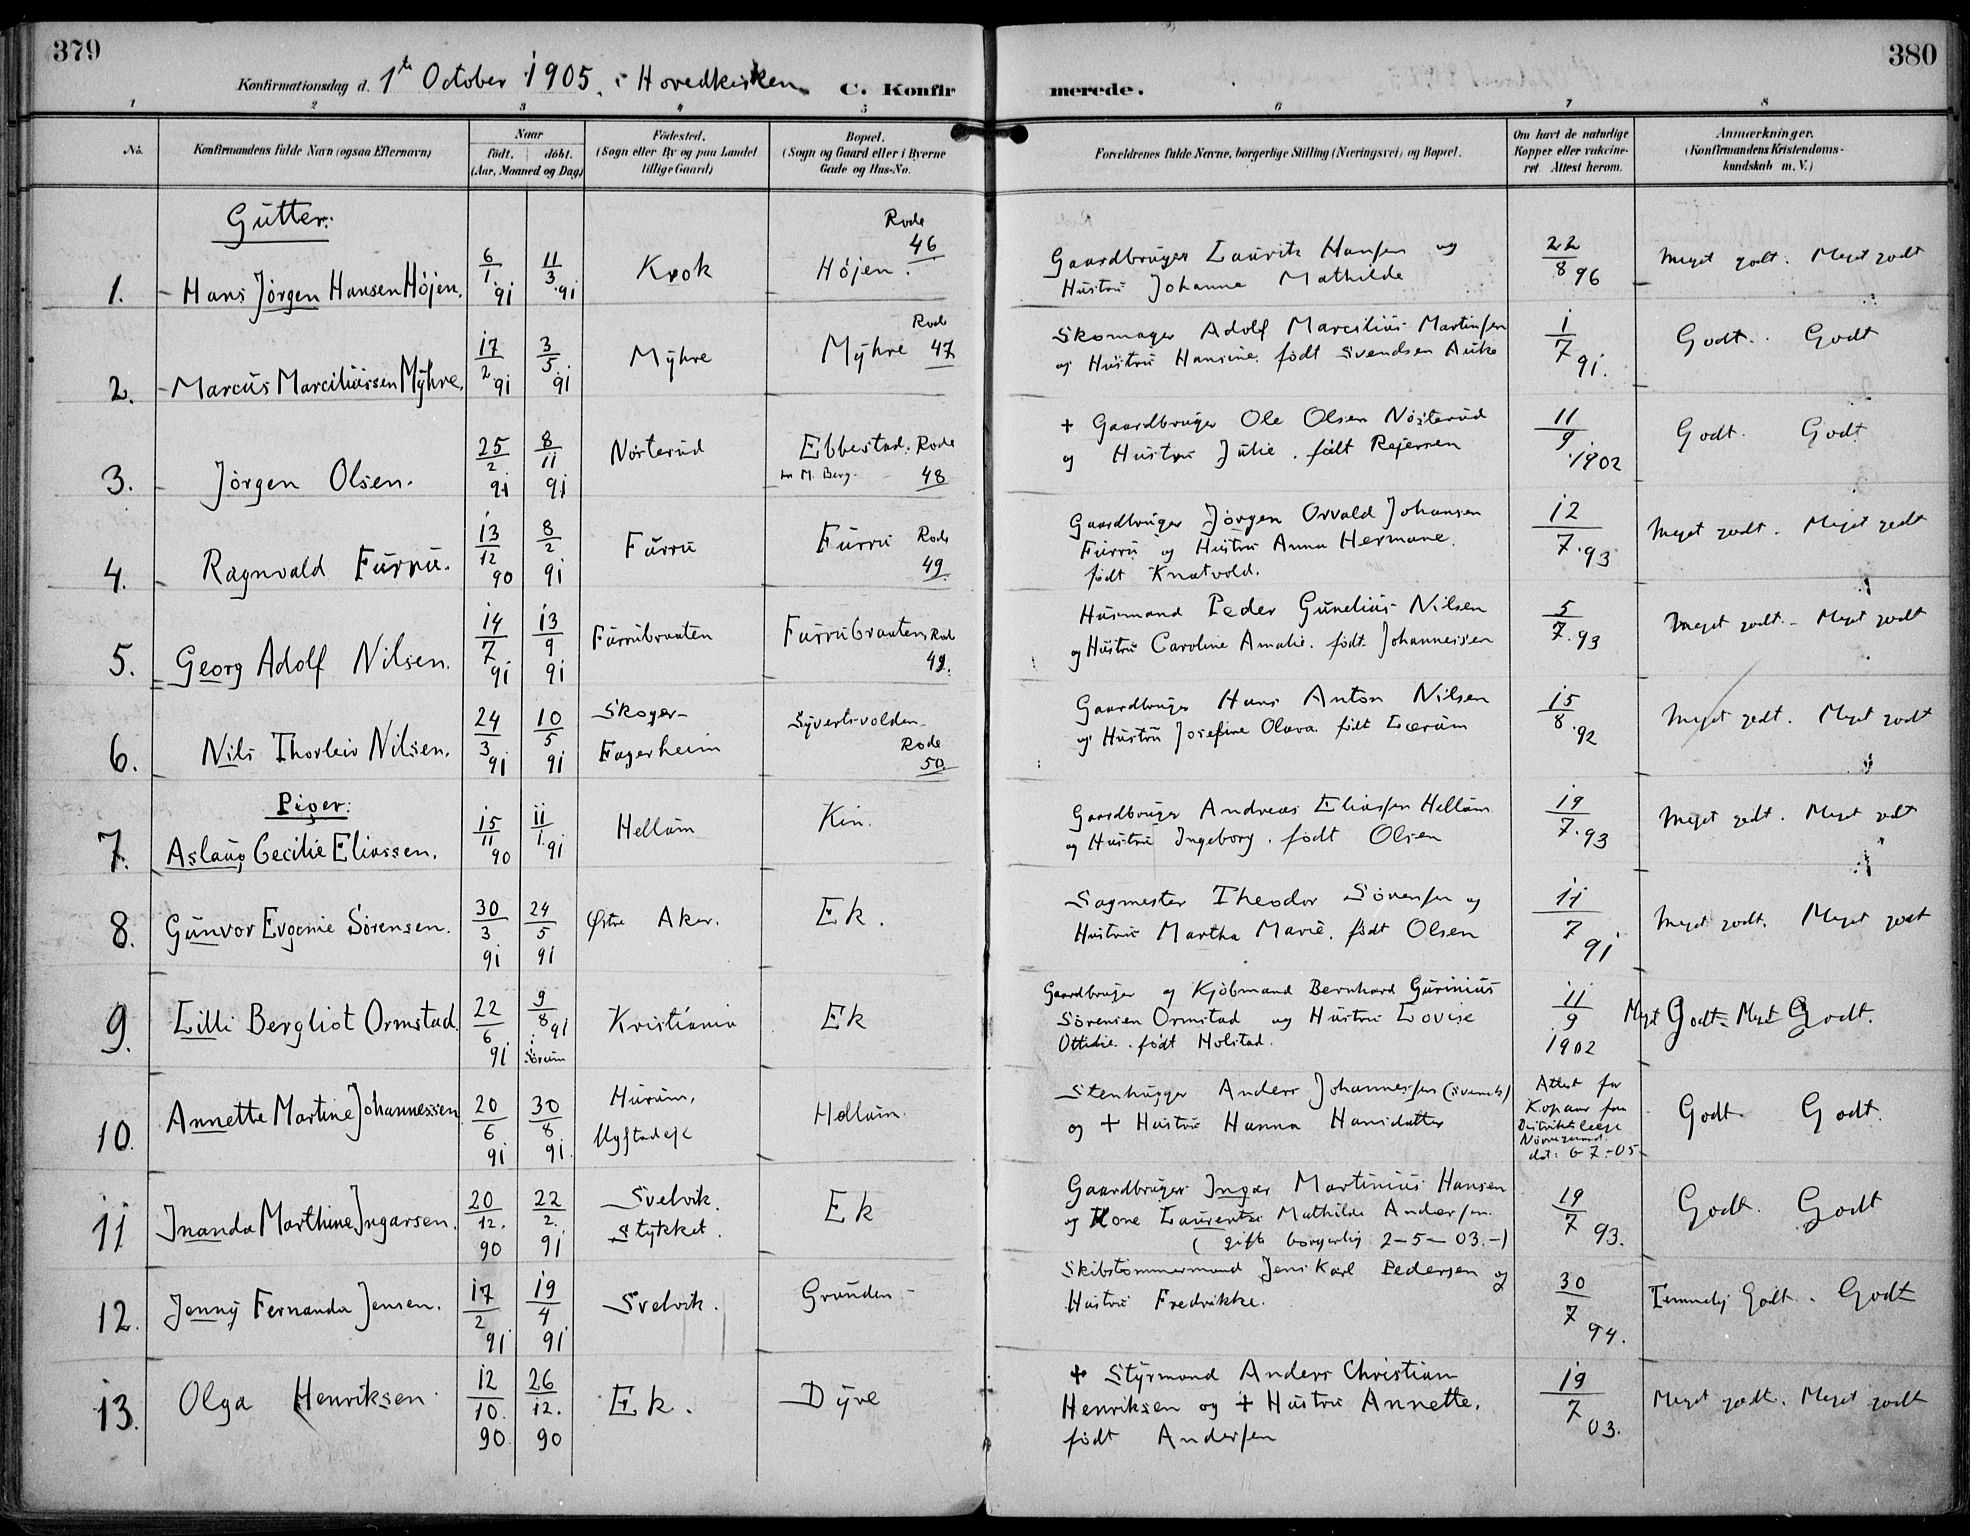 379
380
Konfirmationsdag d. 1te October 1905. i Hovedkirken. C. Konfirmerede.
1 2 3 4 5 6 7 8
No.
Konfirmandens fulde Navn (ogsaa Efternavn)
Naar
født. døbt.
(Aar, Maaned og Dag)
Fødested.
(Sogn eller By og paa Landet
tillige Gaard)
Bopæl.
(Sogn og Gaard eller i Byerne
Gade og Hus-No.
Forældrenes fulde Navne, borgerlige Stilling (Næringsvei) og Bopæl.
Om havt de naturlige
Kopper eller vakcine-
ret. Attest herom.
Anmærkninger.
(Konfirmandens Kristendoms-
kundskab m. V.)
Gutter:
1. Hans Jørgen Hansen Höjen. 6/1 91 11/3 91 Krok Höjen. Rode 46
Gaardbruger Laurits Hansen og
Hustru Johanna Mathilde
22/8 96 Meget godt. Meget godt
2. Marcus Marciliussen Myhre. 17/2 91 3/5 91 Myhre Myhre Rode 47
Skomager Adolf Marcilius Martinsen
og Hustru Hansine. født Svendsen
1/7 91. Godt. Godt
3. Jörgen Olsen. 25/2 91 8/11 91 Nösterud Ebbestad. Rode 48
M. Berg.
+ Gaardbruger Ole Olsen Nösterud
og Hustru Julie. født Rejersen
11/9 1902 Godt. Godt
4. Ragnvald Furru. 13/12 90 8/2 91 Furru Furru Rode 49.
Gaardbruger Jörgen Orvald Johansen
Furru og Hustru Anna Hermane.
født Knatvold.
12/7 93 Meget godt. Meget godt
5. Georg Adolf Nilsen. 14/7 91 13/9 91 Furrubraaten Furrubraaten Rode 49.
Husmand Peder Gunelius Nilsen
og Hustru Caroline Amalie. født Johannessen
5/7 93 Meget godt. Meget godt
6. Nils Thorleiv Nilsen. 24/3 91 10/5 91 Skoger-
Fagerheim Syvertsvolden. Rode 50.
Gaardbruger Hans Anton Nilsen
og Hustru Josefine Olava født Lærum
15/8 92 Meget godt. Meget godt
Piger:
7. Aslaug Cecilie Eliassen. 15/11 90 11/1 91 Hellum Kin.
Gaardbruger Andreas Eliassen Hellum
og Hustru Ingeborg. født Olsen
19/7 93 Meget godt. Meget godt
8. Gunvor Evgenie Sörensen. 30/3 91 24/5 91 Østre Aker. Ek.
Sagmester Theodor Sörensen og
Hustru Martha Marie. født Olsen
11/7 91 Meget godt. Meget godt
9. Lilli Bergliot Ormstad. 22/6 91 9/8 91 i Sörum Kristiania Ek
Gaardbruger og Kjöbmand Bernhard Gurinius
Sörensen Ormstad og Hustru Lovise
Ottilie. født Holstad.
11/9 1902 Meget Godt. Meget Godt.
10. Annette Martine Johannessen 20/6 91 30/8 91. Hurum. Hellum.
Stenhugger Anders Johannessen (svensk)
og + Hustru Hanna Hansdatter
Attest for
Kopaar fra
Distriktslæge
dat: 6-7-05 Godt. Godt.
11. Inanda Marthine Ingarsen. 20/12. 90 22/2. 91 Svelvik.
Stykket. Ek
Gaardbruger Ingar Martinius Hansen
og Kone Laurentze Mathilde Andersen.
(gift borgerlig 2-5-03.-)
19/7 93. Godt. Godt
12. Jenny Fernanda Jensen. 17/2 91 19/4 91 Svelvik. Grunden
Skibstømmermand Jens Karl Pedersen og
Hustru Fredrikke.
30/7 94. Temmelig Godt. Godt
13. Olga Henriksen. 12/10. 90 26/12. 90 Ek. Dyve
+ Styrmand Anders Christian
Henriksen og + Hustru Annette.
født Andersen
19/7 03. Meget godt. Meget godt